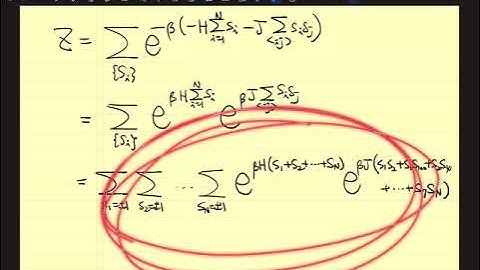 Z = Σ_{{S_i}} e^{-β(-H Σ_{i=1}^{N} S_i - J Σ_{<ij>} S_i S_j)}
= Σ_{{S_i}} e^{βH Σ_{i=1}^{N} S_i} e^{βJ Σ_{<ij>} S_i S_j}
= Σ_{S_1=±1} Σ_{S_2=±1} ... Σ_{S_N=±1} e^{βH(S_1+S_2+...+S_N)} e^{βJ(S_1S_2+ +...+S_7S_N)}